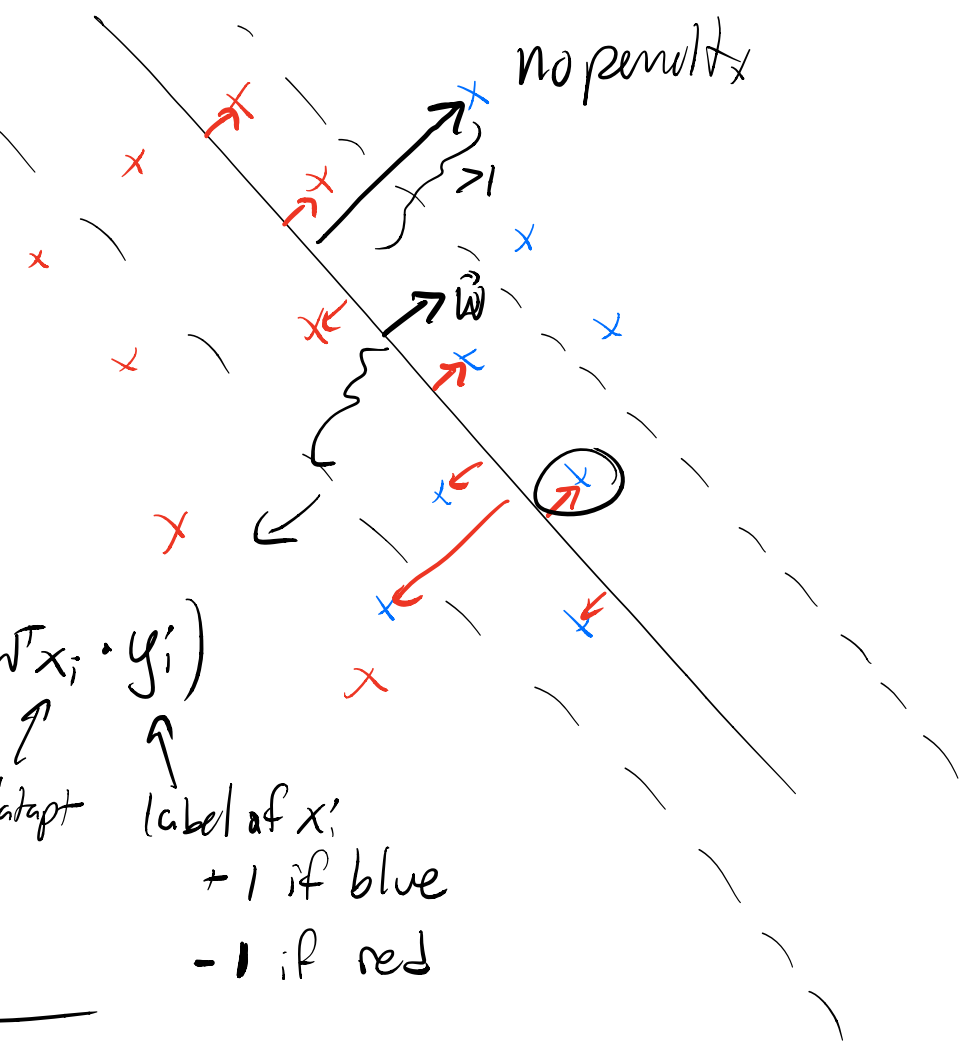 no penalty
>1
w⃗
wᵀxᵢ · yᵢ)
datapt
label of xᵢ
+1 if blue
-1 if red